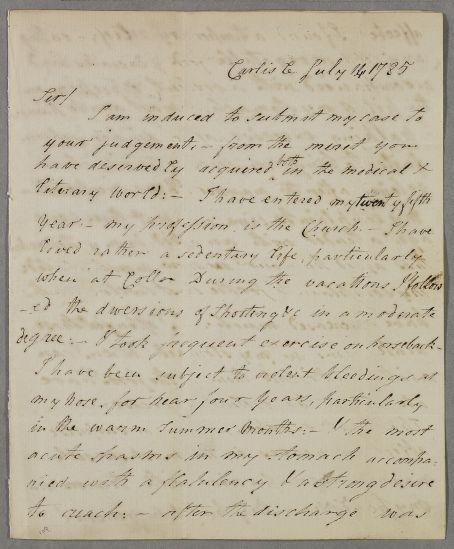 Carlisle July 14 1785
Sir/
I am induced to submit my case to
your judgement, – from the merit you
have deservedly acquired both in the medical &
literary world: – I have entered my twenty fifth
year – my profession is the Church – I have
lived rather a sedentary life, particularly
when at Colle: During the vacations I follow
-ed the diversions of Shooting &c in a moderate
degree: – I took frequent exercise on horseback –
I have been subject to violent bleedings at
my nose, for near four years, particularly
in the warm Summer months: – & the most
acute spasms in my stomach accompa-
nied with a flatulency & a strong desire
to reach: – after the discharge was